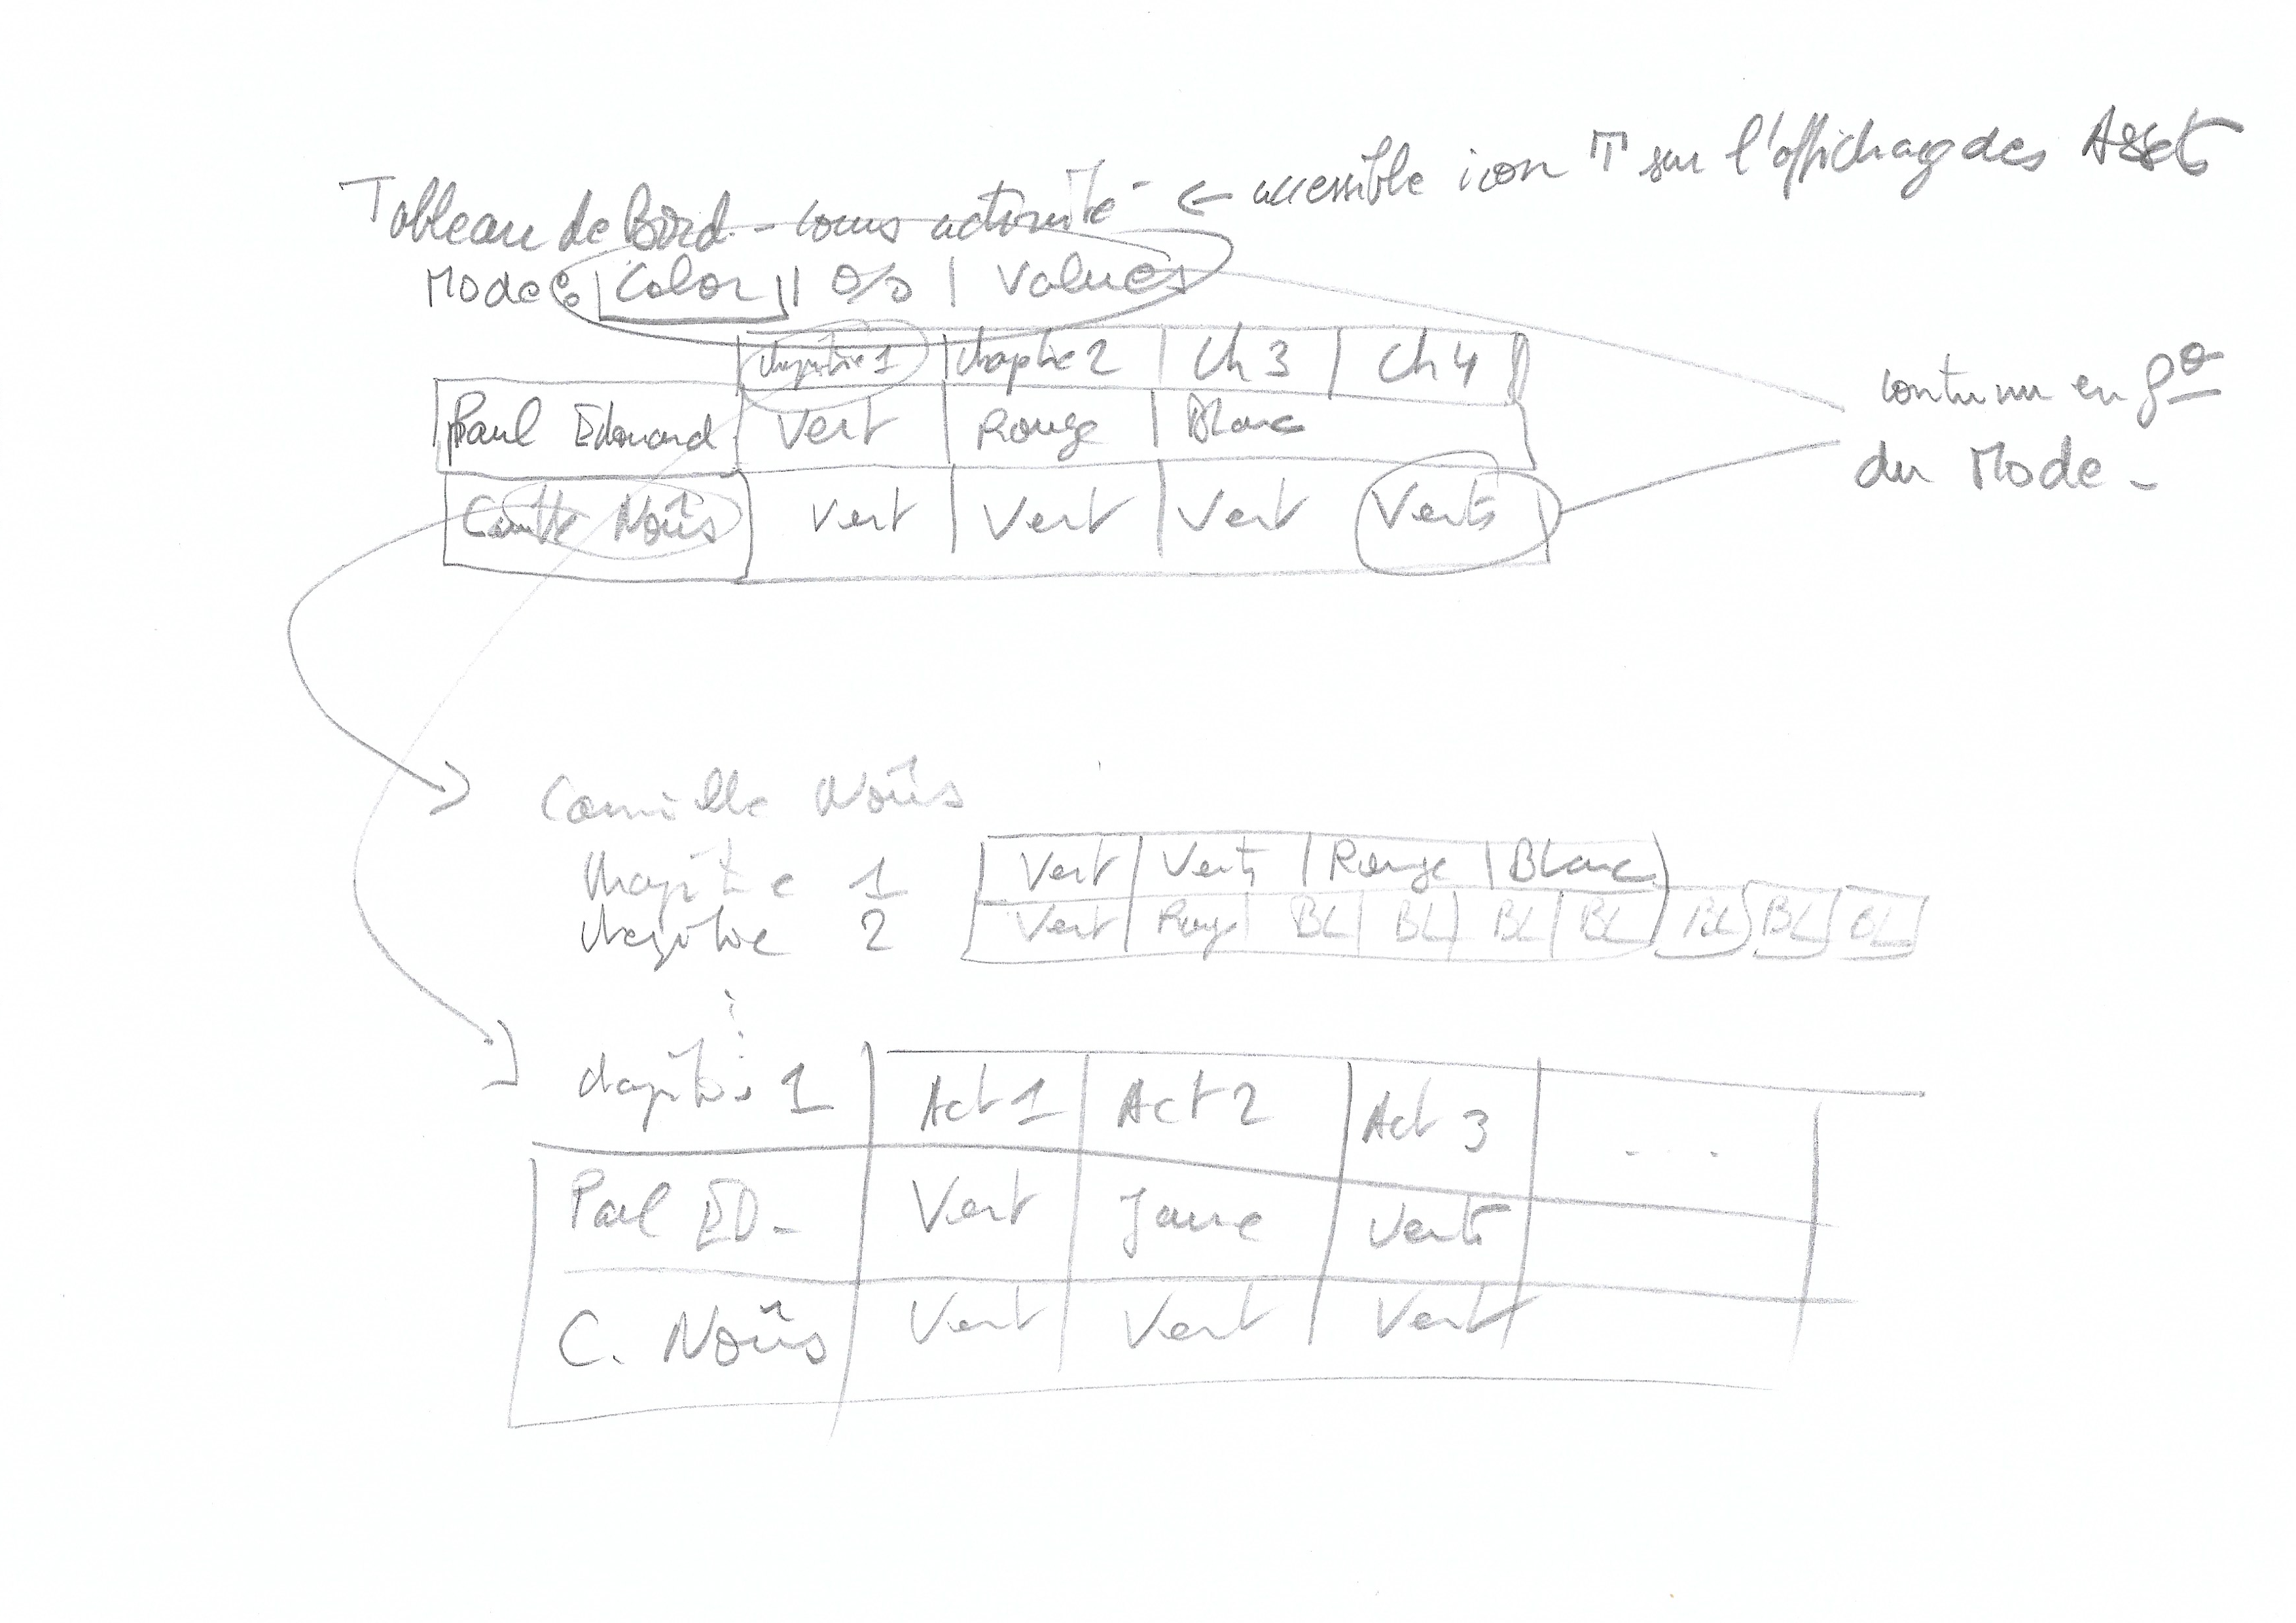 Tableau de Bord - cours activité - ← accessible icon T sur l'affichage des Assets
Mode : | Color | % | Values
chapitre 1 | chapitre 2 | Ch 3 | Ch 4
Paul Edouard | Vert | Rouge | Blanc
Camille Noûs | Vert | Vert | Vert | Verts
contenu en f°
du Mode -
Camille Noûs
chapitre 1 | Vert | Verts | Rouge | Blanc
chapitre 2 | Vert | Rouge | BL | BL | BL | BL | BL | BL | BL
chapitre 1 | Act 1 | Act 2 | Act 3 | ...
Paul ED - | Vert | Jaune | Verts
C. Noûs | Vert | Vert | Vert